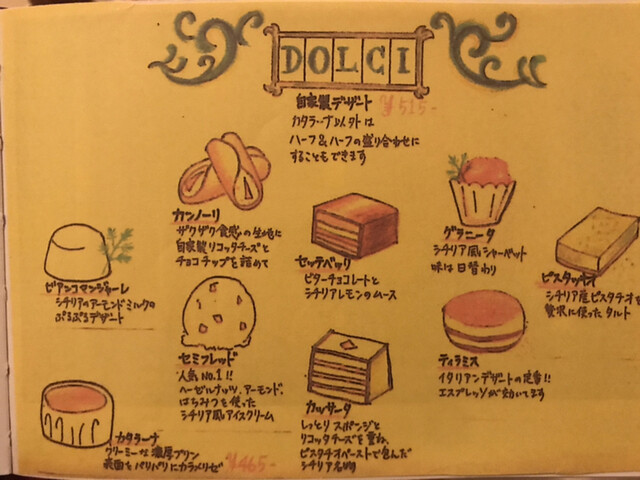 DOLCI
自家製デザート ¥515-
カタラーナ以外は
ハーフ&ハーフの盛り合わせに
することもできます
カンノーリ
ザクザク食感の生地に
自家製リコッタチーズと
チョコチップを詰めて
セッテベッリ
ビターチョコレートと
シチリアレモンのムース
グラニータ
シチリア風シャーベット
味は日替わり
ピスタッキィ
シチリア産ピスタチオを
贅沢に使ったタルト
ビアンコマンジャーレ
シチリアのアーモンドミルクの
ぷるぷるデザート
セミフレッド
人気No.1!!
ヘーゼルナッツ、アーモンド、
はちみつを使った
シチリア風アイスクリーム
カッサータ
しっとりスポンジと
リコッタチーズを重ね、
ピスタチオペーストで包んだ
シチリア名物
ティラミス
イタリアンデザートの定番!!
エスプレッソが効いてます
カタラーナ
クリーミーな濃厚プリン
表面をパリパリにカラメリゼ ¥465-